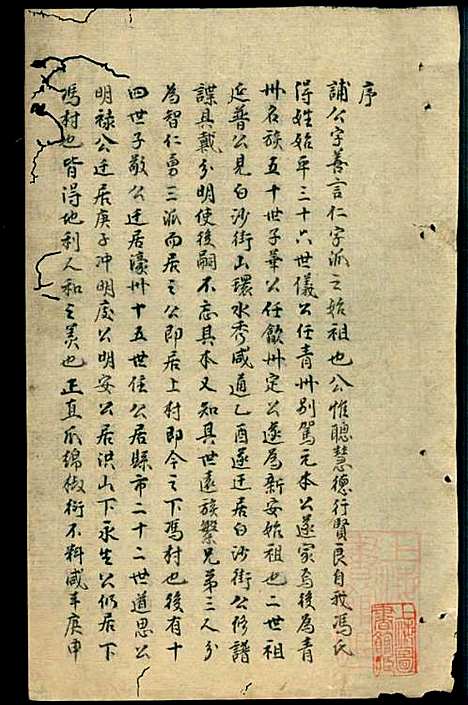 序
誧公字善言仁字派之始祖也公惟聰慧德行賢良自我馮氏
得姓始平三十六世儀公任青州别駕元本公遂家焉後為青
州名族五十世子華公任歙州定公遂為新安始祖也二世祖
延普公見白沙街山環水秀咸通乙酉遂迁居白沙街公修譜
諜具載分明使後嗣不忘具本又知具世遠族繁兄弟三人分
為智仁勇三派而居之公即居上村即今之下馮村也後有十
四世子敬公迁居濠州十五世任公居縣市二十二世道思公
明祿公迁居庚子冲明度公明安公居洪山下永生公仍居下
馮村也皆得地利人和之美也正直瓜綿椒衍不料咸丰庚申
上海圖書館藏